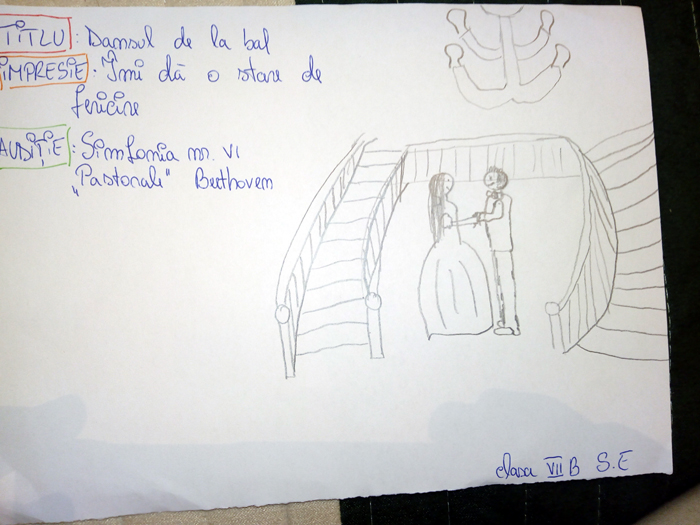 TITLU: Dansul de la bal
IMPRESIE: Îmi dă o stare de
fericire
AUDIȚIE: Simfonia nr. VI
„Pastorale" Beethoven
clasa VII B S.E